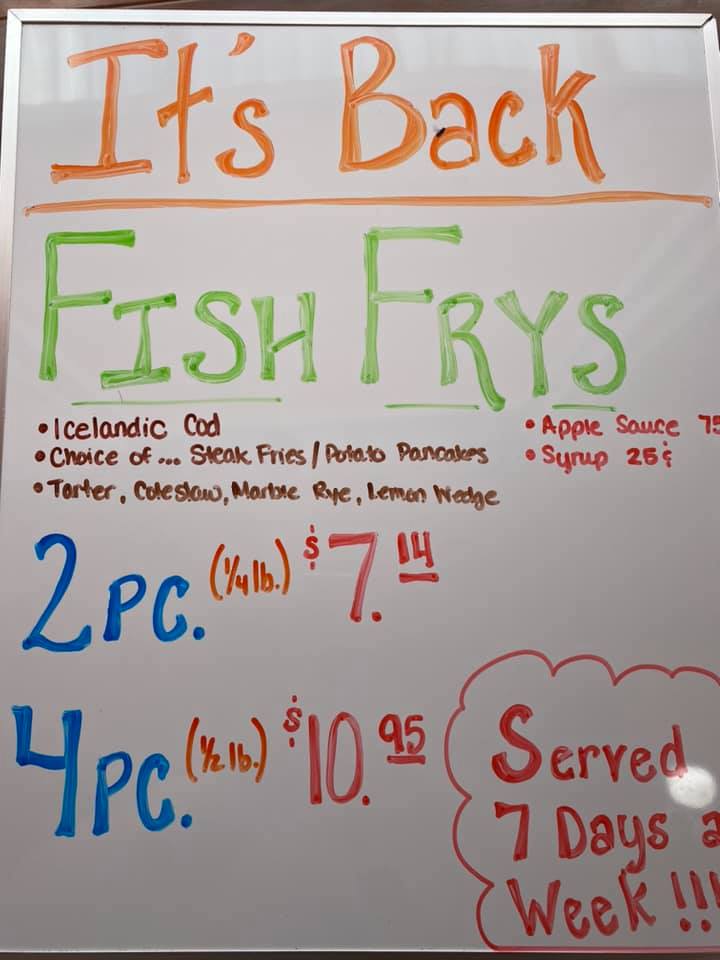 It's Back
FISH FRYS
• Icelandic Cod
• Choice of ... Steak Fries / Potato Pancakes
• Tarter, Coleslaw, Marble Rye, Lemon Wedge
• Apple Sauce 75
• Syrup 25¢
2 PC. (1/4 lb.) $7.14
4 PC. (1/2 lb.) $10.95
Served
7 Days a
Week !!!